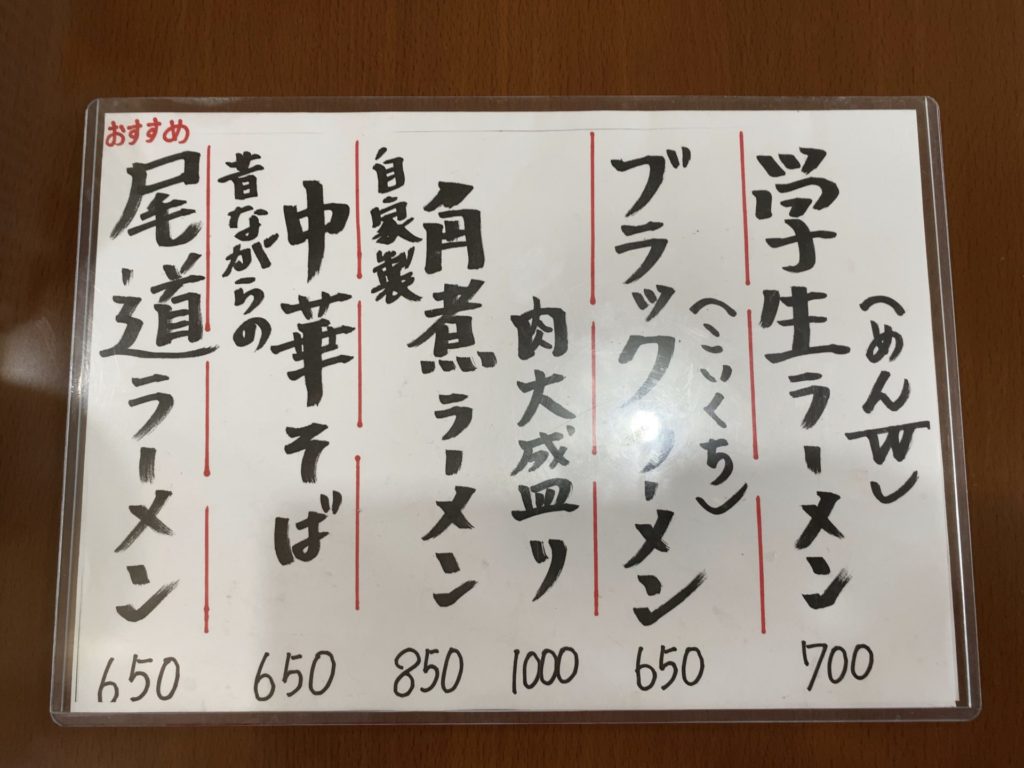 おすすめ
尾道ラーメン
650
昔ながらの
中華そば
650
自家製
角煮ラーメン
850
肉大盛り
1000
ブラックラーメン
(こいくち)
650
学生ラーメン
(めんW)
700